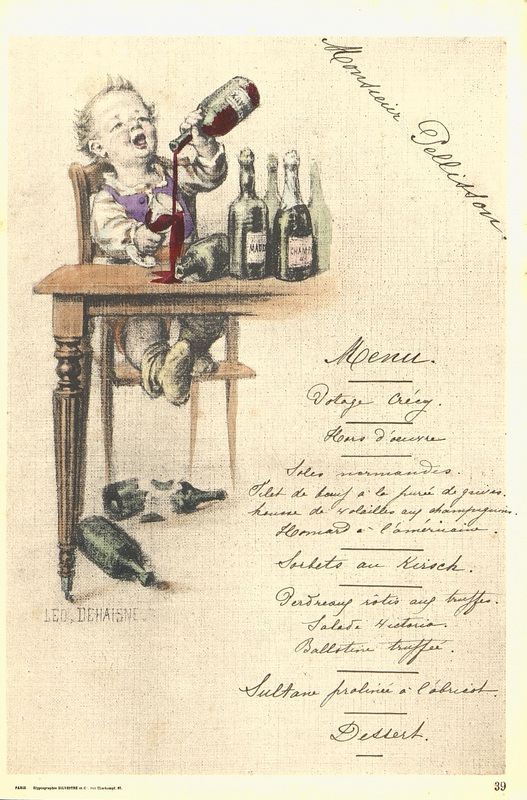 Monsieur Pellisson.
MAD
CHAM
Menu.
Potage Crécy.
Hors d'oeuvre
Soles normandes.
Filet de boeuf à la purée de grives.
mousse de volailles aux champignons.
Homard à l'américaine.
Sorbets au Kirsch.
Perdreaux rôtis aux truffes.
Salade Victoria.
Ballotine truffée.
Sultane pralinée à l'abricot.
Dessert.
LEO, DEHAISNE
PARIS Gypsographie SILVESTRE et Cie, rue Oberkampf, 97.
39